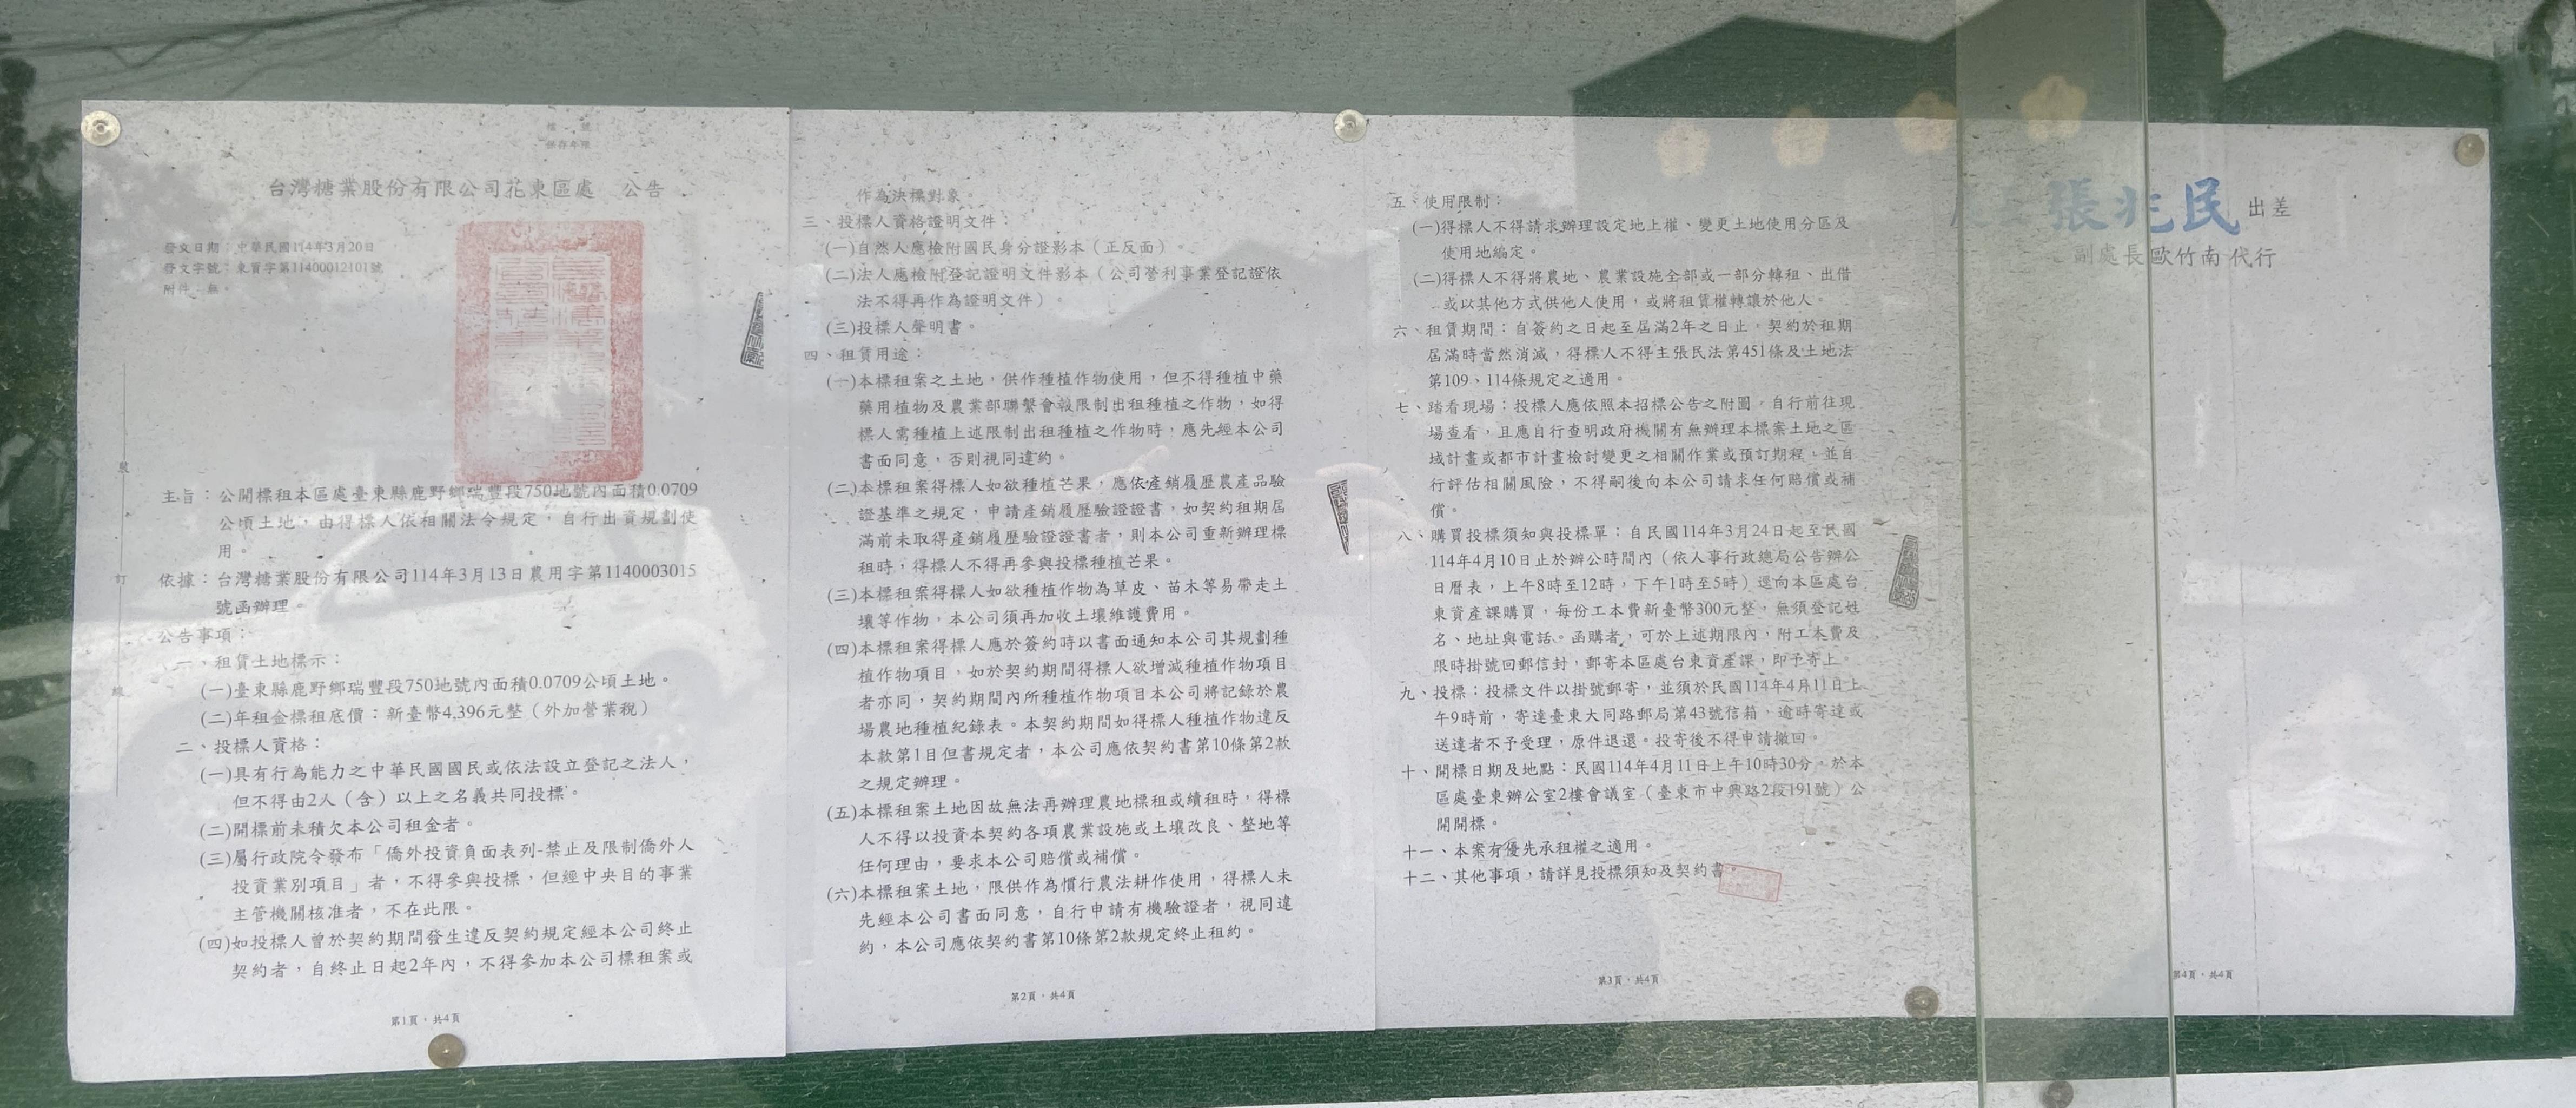 檔　號：
保存年限：
台灣糖業股份有限公司花東區處　公告
發文日期：中華民國114年3月20日
發文字號：東資字第11400012101號
附件：無。
主旨：公開標租本區處臺東縣鹿野鄉瑞豐段750地號內面積0.0709
公頃土地，由得標人依相關法令規定，自行出資規劃使
用。
依據：台灣糖業股份有限公司114年3月13日農用字第1140003015
號函辦理。
公告事項：
一、租賃土地標示：
(一)臺東縣鹿野鄉瑞豐段750地號內面積0.0709公頃土地。
(二)年租金標租底價：新臺幣4,396元整（外加營業稅）
二、投標人資格：
(一)具有行為能力之中華民國國民或依法設立登記之法人，
但不得由2人（含）以上之名義共同投標。
(二)開標前未積欠本公司租金者。
(三)屬行政院令發布「僑外投資負面表列-禁止及限制僑外人
投資業別項目」者，不得參與投標，但經中央目的事業
主管機關核准者，不在此限。
(四)如投標人曾於契約期間發生違反契約規定經本公司終止
契約者，自終止日起2年內，不得參加本公司標租案或
裝
訂
線
第1頁，共4頁
作為決標對象。
三、投標人資格證明文件：
(一)自然人應檢附國民身分證影本（正反面）。
(二)法人應檢附登記證明文件影本（公司營利事業登記證依
法不得再作為證明文件）。
(三)投標人聲明書。
四、租賃用途：
(一)本標租案之土地，供作種植作物使用，但不得種植中藥
藥用植物及農業部聯繫會報限制出租種植之作物，如得
標人需種植上述限制出租種植之作物時，應先經本公司
書面同意，否則視同違約。
(二)本標租案得標人如欲種植芒果，應依產銷履歷農產品驗
證基準之規定，申請產銷履歷驗證證書，如契約租期屆
滿前未取得產銷履歷驗證證書者，則本公司重新辦理標
租時，得標人不得再參與投標種植芒果。
(三)本標租案得標人如欲種植作物為草皮、苗木等易帶走土
壤等作物，本公司須再加收土壤維護費用。
(四)本標租案得標人應於簽約時以書面通知本公司其規劃種
植作物項目，如於契約期間得標人欲增減種植作物項目
者亦同，契約期間內所種植作物項目本公司將記錄於農
場農地種植紀錄表。本契約期間如得標人種植作物違反
本款第1目但書規定者，本公司應依契約書第10條第2款
之規定辦理。
(五)本標租案土地因故無法再辦理農地標租或續租時，得標
人不得以投資本契約各項農業設施或土壤改良、整地等
任何理由，要求本公司賠償或補償。
(六)本標租案土地，限供作為慣行農法耕作使用，得標人未
先經本公司書面同意，自行申請有機驗證者，視同違
約，本公司應依契約書第10條第2款規定終止租約。
第2頁，共4頁
五、使用限制：
(一)得標人不得請求辦理設定地上權、變更土地使用分區及
使用地編定。
(二)得標人不得將農地、農業設施全部或一部分轉租、出借
或以其他方式供他人使用，或將租賃權轉讓於他人。
六、租賃期間：自簽約之日起至屆滿2年之日止。契約於租期
屆滿時當然消滅，得標人不得主張民法第451條及土地法
第109、114條規定之適用。
七、踏看現場：投標人應依照本招標公告之附圖。自行前往現
場查看，且應自行查明政府機關有無辦理本標案土地之區
域計畫或都市計畫檢討變更之相關作業或預訂期程，並自
行評估相關風險，不得嗣後向本公司請求任何賠償或補
償。
八、購買投標須知與投標單：自民國114年3月24日起至民國
114年4月10日止於辦公時間內（依人事行政總局公告辦公
日曆表，上午8時至12時，下午1時至5時）逕向本區處台
東資產課購買，每份工本費新臺幣300元整，無須登記姓
名、地址與電話。函購者，可於上述期限內，附工本費及
限時掛號回郵信封，郵寄本區處台東資產課，即予寄上。
九、投標：投標文件以掛號郵寄，並須於民國114年4月11日上
午9時前，寄達臺東大同路郵局第43號信箱，逾時寄達或
送達者不予受理，原件退還。投寄後不得申請撤回。
十、開標日期及地點：民國114年4月11日上午10時30分。於本
區處臺東辦公室2樓會議室（臺東市中興路2段191號）公
開開標。
十一、本案有優先承租權之適用。
十二、其他事項，請詳見投標須知及契約書。
第3頁，共4頁
張兆民 出差
副處長歐竹南代行
第4頁，共4頁